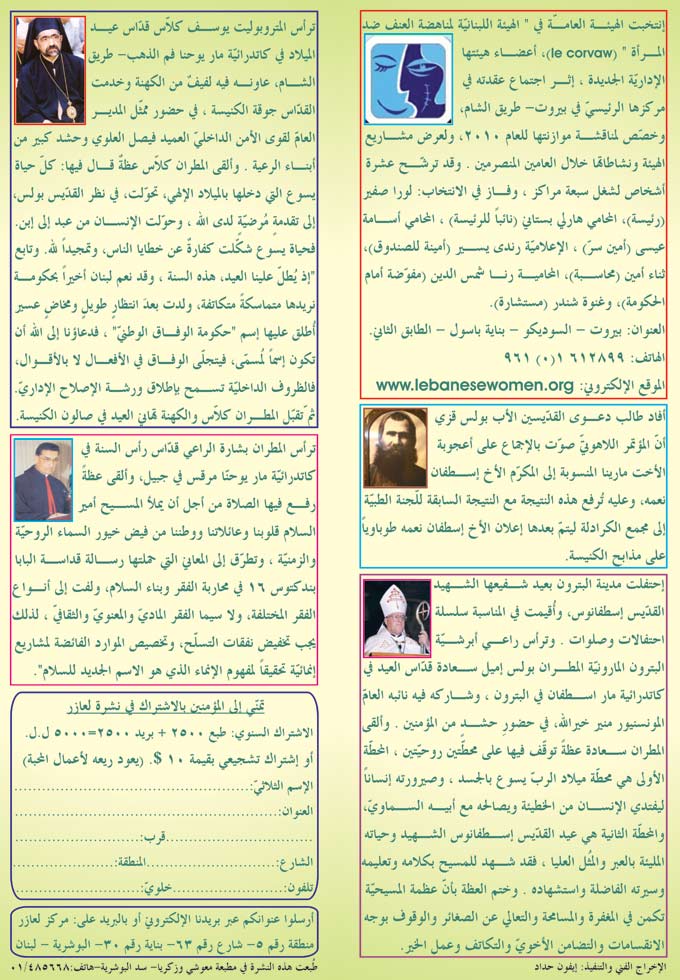 إنتخبت الهيئة العامّة في " الهيئة اللبنانيّة لمناهضة العنف ضد
المرأة " (le corvaw)، أعضاء هيئتها
الإداريّة الجديدة ، إثر اجتماع عقدته في
مركزها الرئيسيّ في بيروت– طريق الشام،
وخصّص لمناقشة موازنتها للعام ٢٠١٠، ولعرض مشاريع
الهيئة ونشاطاتها خلال العامين المنصرمين . وقد ترشّح عشرة
أشخاص لشغل سبعة مراكز ، وفاز في الانتخاب: لورا صفير
(رئيسة)، المحامي هارلي بستاني (نائباً للرئيسة) ، المحامي أسامة
عيسى (أمين سرّ) ، الإعلاميّة رندى يسير (أمينة للصندوق)،
ثناء أمين (محاسبة)، المحامية رنا شمس الدين (مفوّضة أمام
الحكومة)، وغنوة شندر (مستشارة).
العنوان: بيروت – السوديكو – بناية باسول – الطابق الثاني.
الهاتف: ٦١٢٨٩٩ ١(٠) ٩٦١
الموقع الإلكترونيّ: www.lebanesewomen.org
أفاد طالب دعوى القدّيسين الأب بولس قزي
أنّ المؤتمر اللاهوتيّ صوّت بالإجماع على أعجوبة
الأخت مارينا المنسوبة إلى المكرّم الأخ إسطفان
نعمه، وعليه تُرفع هذه النتيجة مع النتيجة السابقة للّجنة الطبيّة
إلى مجمع الكرادلة ليتمّ بعدها إعلان الأخ إسطفان نعمه طوباوياً
على مذابح الكنيسة.
إحتفلت مدينة البترون بعيد شفيعها الشهيد
القدّيس إسطفانوس، وأُقيمت في المناسبة سلسلة
احتفالات وصلوات . وترأس راعي أبرشيّة
البترون المارونيّة المطران بولس إميل سعادة قدّاس العيد في
كاتدرائية مار اسطفان في البترون ، وشاركه فيه نائبه العامّ
المونسنيور منير خيرالله، في حضورِ حشدٍ من المؤمنين . وألقى
المطران سعادة عظةً توقّف فيها على محطّتين روحيّتين ، المحطّة
الأولى هي محطّة ميلاد الربّ يسوع بالجسد ، وصيرورته إنساناً
ليفتدي الإنسان من الخطيئة ويصالحه مع أبيه السماويّ،
والمحطّة الثانية هي عيد القدّيس إسطفانوس الشهيد وحياته
المليئة بالعبر والمُثل العليا ، فقد شهد للمسيح بكلامه وتعليمه
وسيرته الفاضلة واستشهاده . وختم العظة بأنّ عظمة المسيحيّة
تكمن في المغفرة والمسامحة والتعالي عن الصغائر والوقوف بوجه
الانقسامات والتضامن الأخويّ والتكاتف وعمل الخير.
الإخراج الفني والتنفيذ: إيفون حداد
ترأس المتروبوليت يوسف كلاّس قدّاس عيد
الميلاد في كاتدرائيّة مار يوحنا فم الذهب– طريق
الشام، عاونه فيه لفيفٌ من الكهنة وخدمت
القدّاس جوقة الكنيسة ، في حضور ممثّل المدير
العامّ لقوى الأمن الداخليّ العميد فيصل العلوي وحشد كبير من
أبناء الرعية . وألقى المطران كلاّس عظةً قال فيها: كلّ حياة
يسوع التي دخلها بالميلاد الإلهي، تحوّلت، في نظر القدّيس بولس،
إلى تقدمةٍ مُرضيّةٍ لدى الله ، وحوّلت الإنسان من عبد إلى إبن.
فحياة يسوع شكّلت كفارةً عن خطايا الناس، وتمجيداً لله. وتابع
"إذ يُطلّ علينا العيد، هذه السنة ، وقد نعم لبنان أخيراً بحكومة
نريدها متماسكةً متكاتفة، ولدت بعدَ انتظارٍ طويلٍ ومخاضٍ عسير
أُطلق عليها إسم "حكومة الوفاق الوطنيّ" ، فدعاؤنا إلى الله أن
تكون إسماً لمُسمّى، فيتجلّى الوفاق في الأفعال لا بالأقوال،
فالظروف الداخليّة تسمح بإطلاق ورشة الإصلاح الإداريّ.
ثمّ تقبّل المطران كلاّس والكهنة تهانيَ العيد في صالون الكنيسة.
ترأس المطران بشارة الراعي قدّاس رأس السنة في
كاتدرائيّة مار يوحنّا مرقس في جبيل، وألقى عظةً
رفع فيها الصلاة من أجل أن يملأ المسيح أمير
السلام قلوبنا وعائلاتنا ووطننا من فيض خيور السماء الروحيّة
والزمنيّة ، وتطرّق إلى المعاني التي حملتها رسالة قداسة البابا
بندكتوس ١٦ في محاربة الفقر وبناء السلام، ولفت إلى أنواع
الفقر المختلفة، ولا سيما الفقر الماديّ والمعنويّ والثقافيّ ، لذلك
يجب تخفيض نفقات التسلّح، وتخصيص الموارد الفائضة لمشاريع
إنمائيّة تحقيقاً لمفهوم الإنماء الذي هو الاسم الجديد للسلام".
تمنّي إلى المؤمنين بالاشتراك في نشرة لعازر
الاشتراك السنوي: طبع ٢٥٠٠ + بريد ٢٥٠٠=٥٠٠٠ ل.ل.
أو إشتراك تشجيعي بقيمة ١٠ $. (يعود ريعه لأعمال المحبة)
الإسم الثلاثيّ:
العنوان:
قرب:
الشارع: المنطقة:
تلفون: خلويّ:
أرسلوا عنوانكم عبر بريدنا الإلكترونيّ أو بالبريد على: مركز لعازر
منطقة رقم ٥– شارع رقم ٦٣– بناية رقم ٣٠– البوشرية – لبنان
طُبعت هذه النشرة في مطبعة معوشي وزكريا– سد البوشرية–هاتف:٠١/٤٨٥٦٦٨